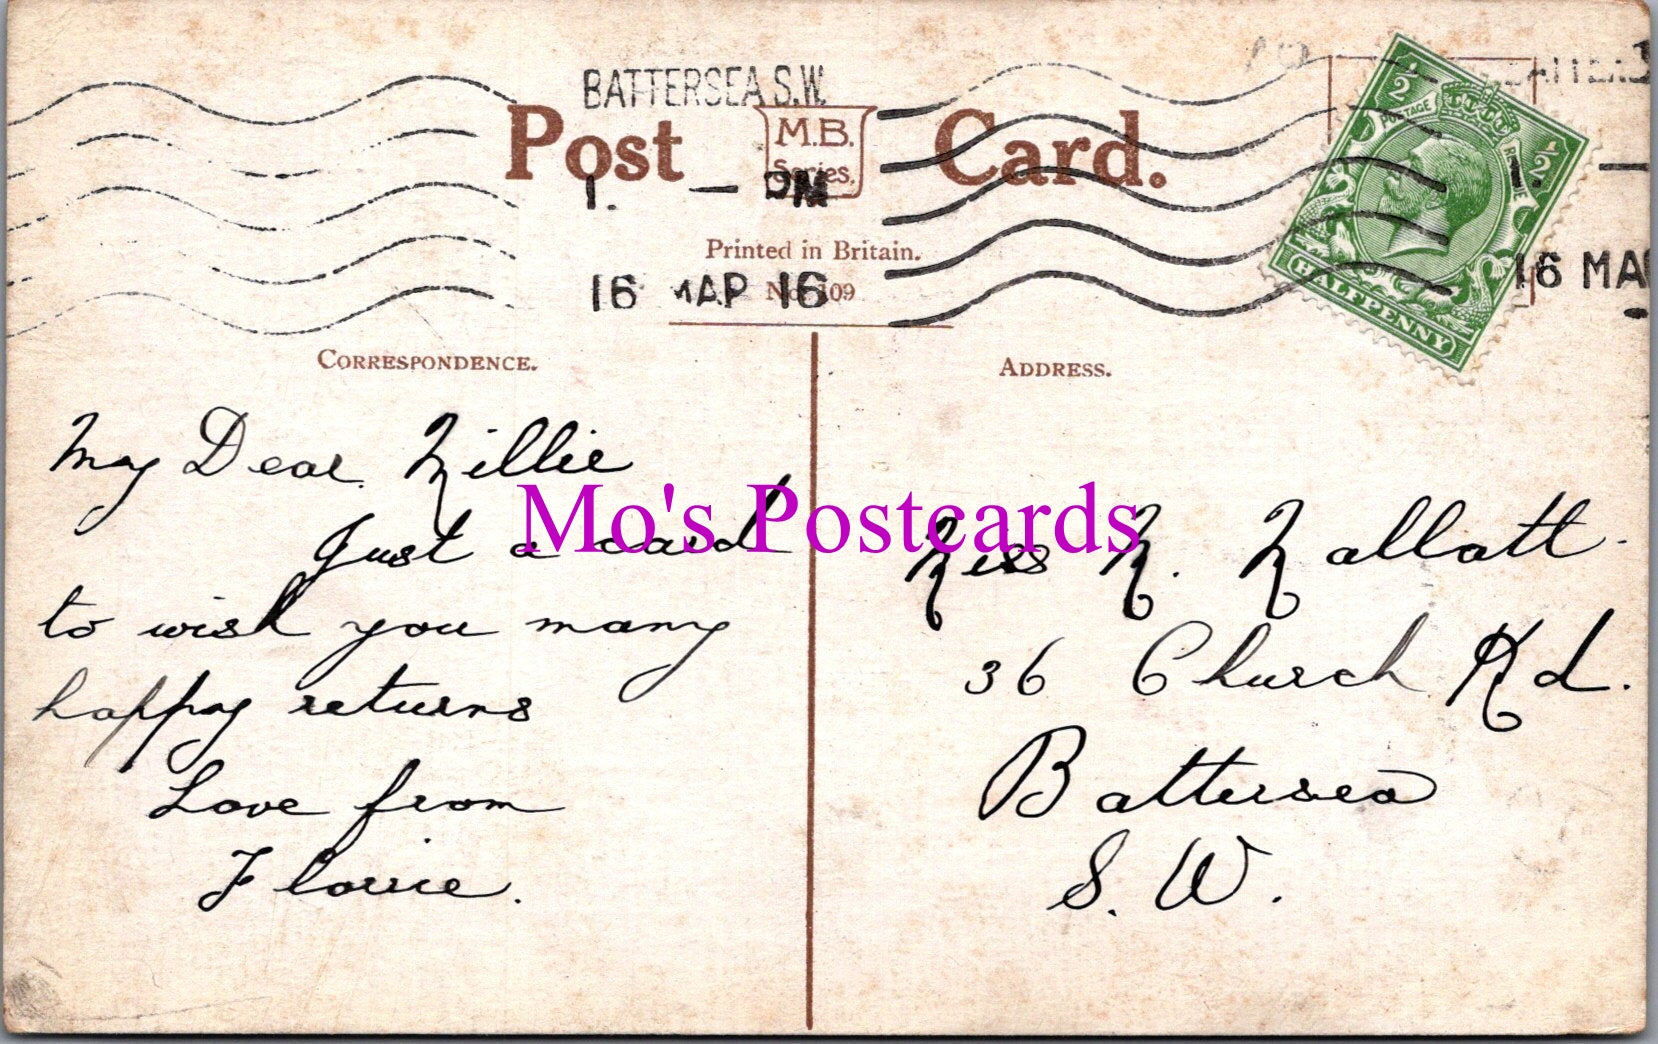 BATTERSEA S.W.
Post Card.
M.B.
Series.
1. — PM
Printed in Britain.
16 MAR 16
No. 109
1/2 1/2
POSTAGE REVENUE
HALFPENNY
1. —
16 MA
CORRESPONDENCE.
ADDRESS.
My Dear Millie
Just a card
to wish you many
happy returns
Love from
Florrie.
Mo's Postcards
Miss M. Mallatt.
36 Church Rd.
Battersea
S. W.